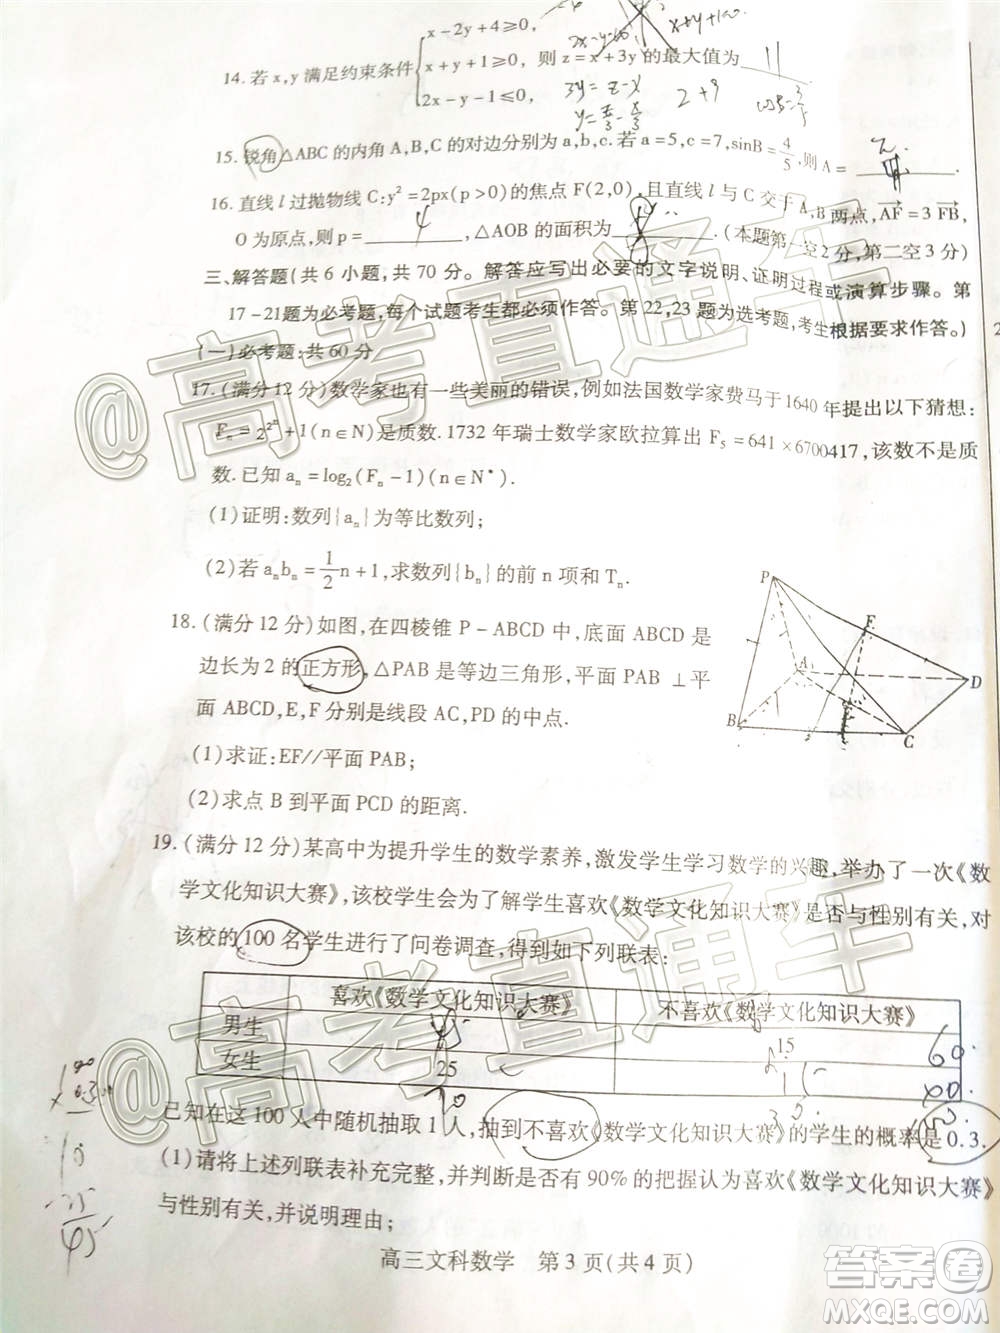 x-2y+4≥0,
14.若x,y满足约束条件 x+y+1≥0, 则z=x+3y的最大值为
2x-y-1≤0,
x+y+1=0
2x-y=0
3y=z-x
2+9
11
15.锐角△ABC的内角A,B,C的对边分别为a,b,c.若a=5,c=7,sinB=4/5,则A=
16.直线l过抛物线C:y²=2px(p>0)的焦点F(2,0),且直线l与C交于A,B两点,AF=3FB,
O为原点,则p= 4 ,△AOB的面积为 .(本题第一空2分,第二空3分)
三、解答题(共6小题,共70分。解答应写出必要的文字说明、证明过程或演算步骤。第
17-21题为必考题,每个试题考生都必须作答。第22,23题为选考题,考生根据要求作答。)
(一)必考题:共60分
17.(满分12分)数学家也有一些美丽的错误,例如法国数学家费马于1640年提出以下猜想:
Fₙ=2^(2ⁿ)+1(n∈N)是质数.1732年瑞士数学家欧拉算出F₅=641×6700417,该数不是质
数.已知aₙ=log₂(Fₙ-1)(n∈N*).
(1)证明:数列{aₙ}为等比数列;
(2)若aₙbₙ=1/2n+1,求数列{bₙ}的前n项和Tₙ.
18.(满分12分)如图,在四棱锥P-ABCD中,底面是
边长为2的正方形,△PAB是等边三角形,平面PAB⊥平
面ABCD,E,F分别是线段AC,PD的中点.
(1)求证:EF//平面PAB;
(2)求点B到平面PCD的距离.
P
F
A
D
B
C
19.(满分12分)某高中为提升学生的数学素养,激发学生学习数学的兴趣,举办了一次《数
学文化知识大赛》,该校学生会为了解学生喜欢《数学文化知识大赛》是否与性别有关,对
该校的100名学生进行了问卷调查,得到如下列联表:
喜欢《数学文化知识大赛》 不喜欢《数学文化知识大赛》
男生 15 60
女生 25 15
70 30
已知在这100人中随机抽取1人,抽到不喜欢《数学文化知识大赛》的学生的概率是0.3.
(1)请将上述列联表补充完整,并判断是否有90%的把握认为喜欢《数学文化知识大赛》
与性别有关,并说明理由;
高三文科数学 第3页(共4页)
@高考直通车
@高考直通车
答案卷
MXQE.COM